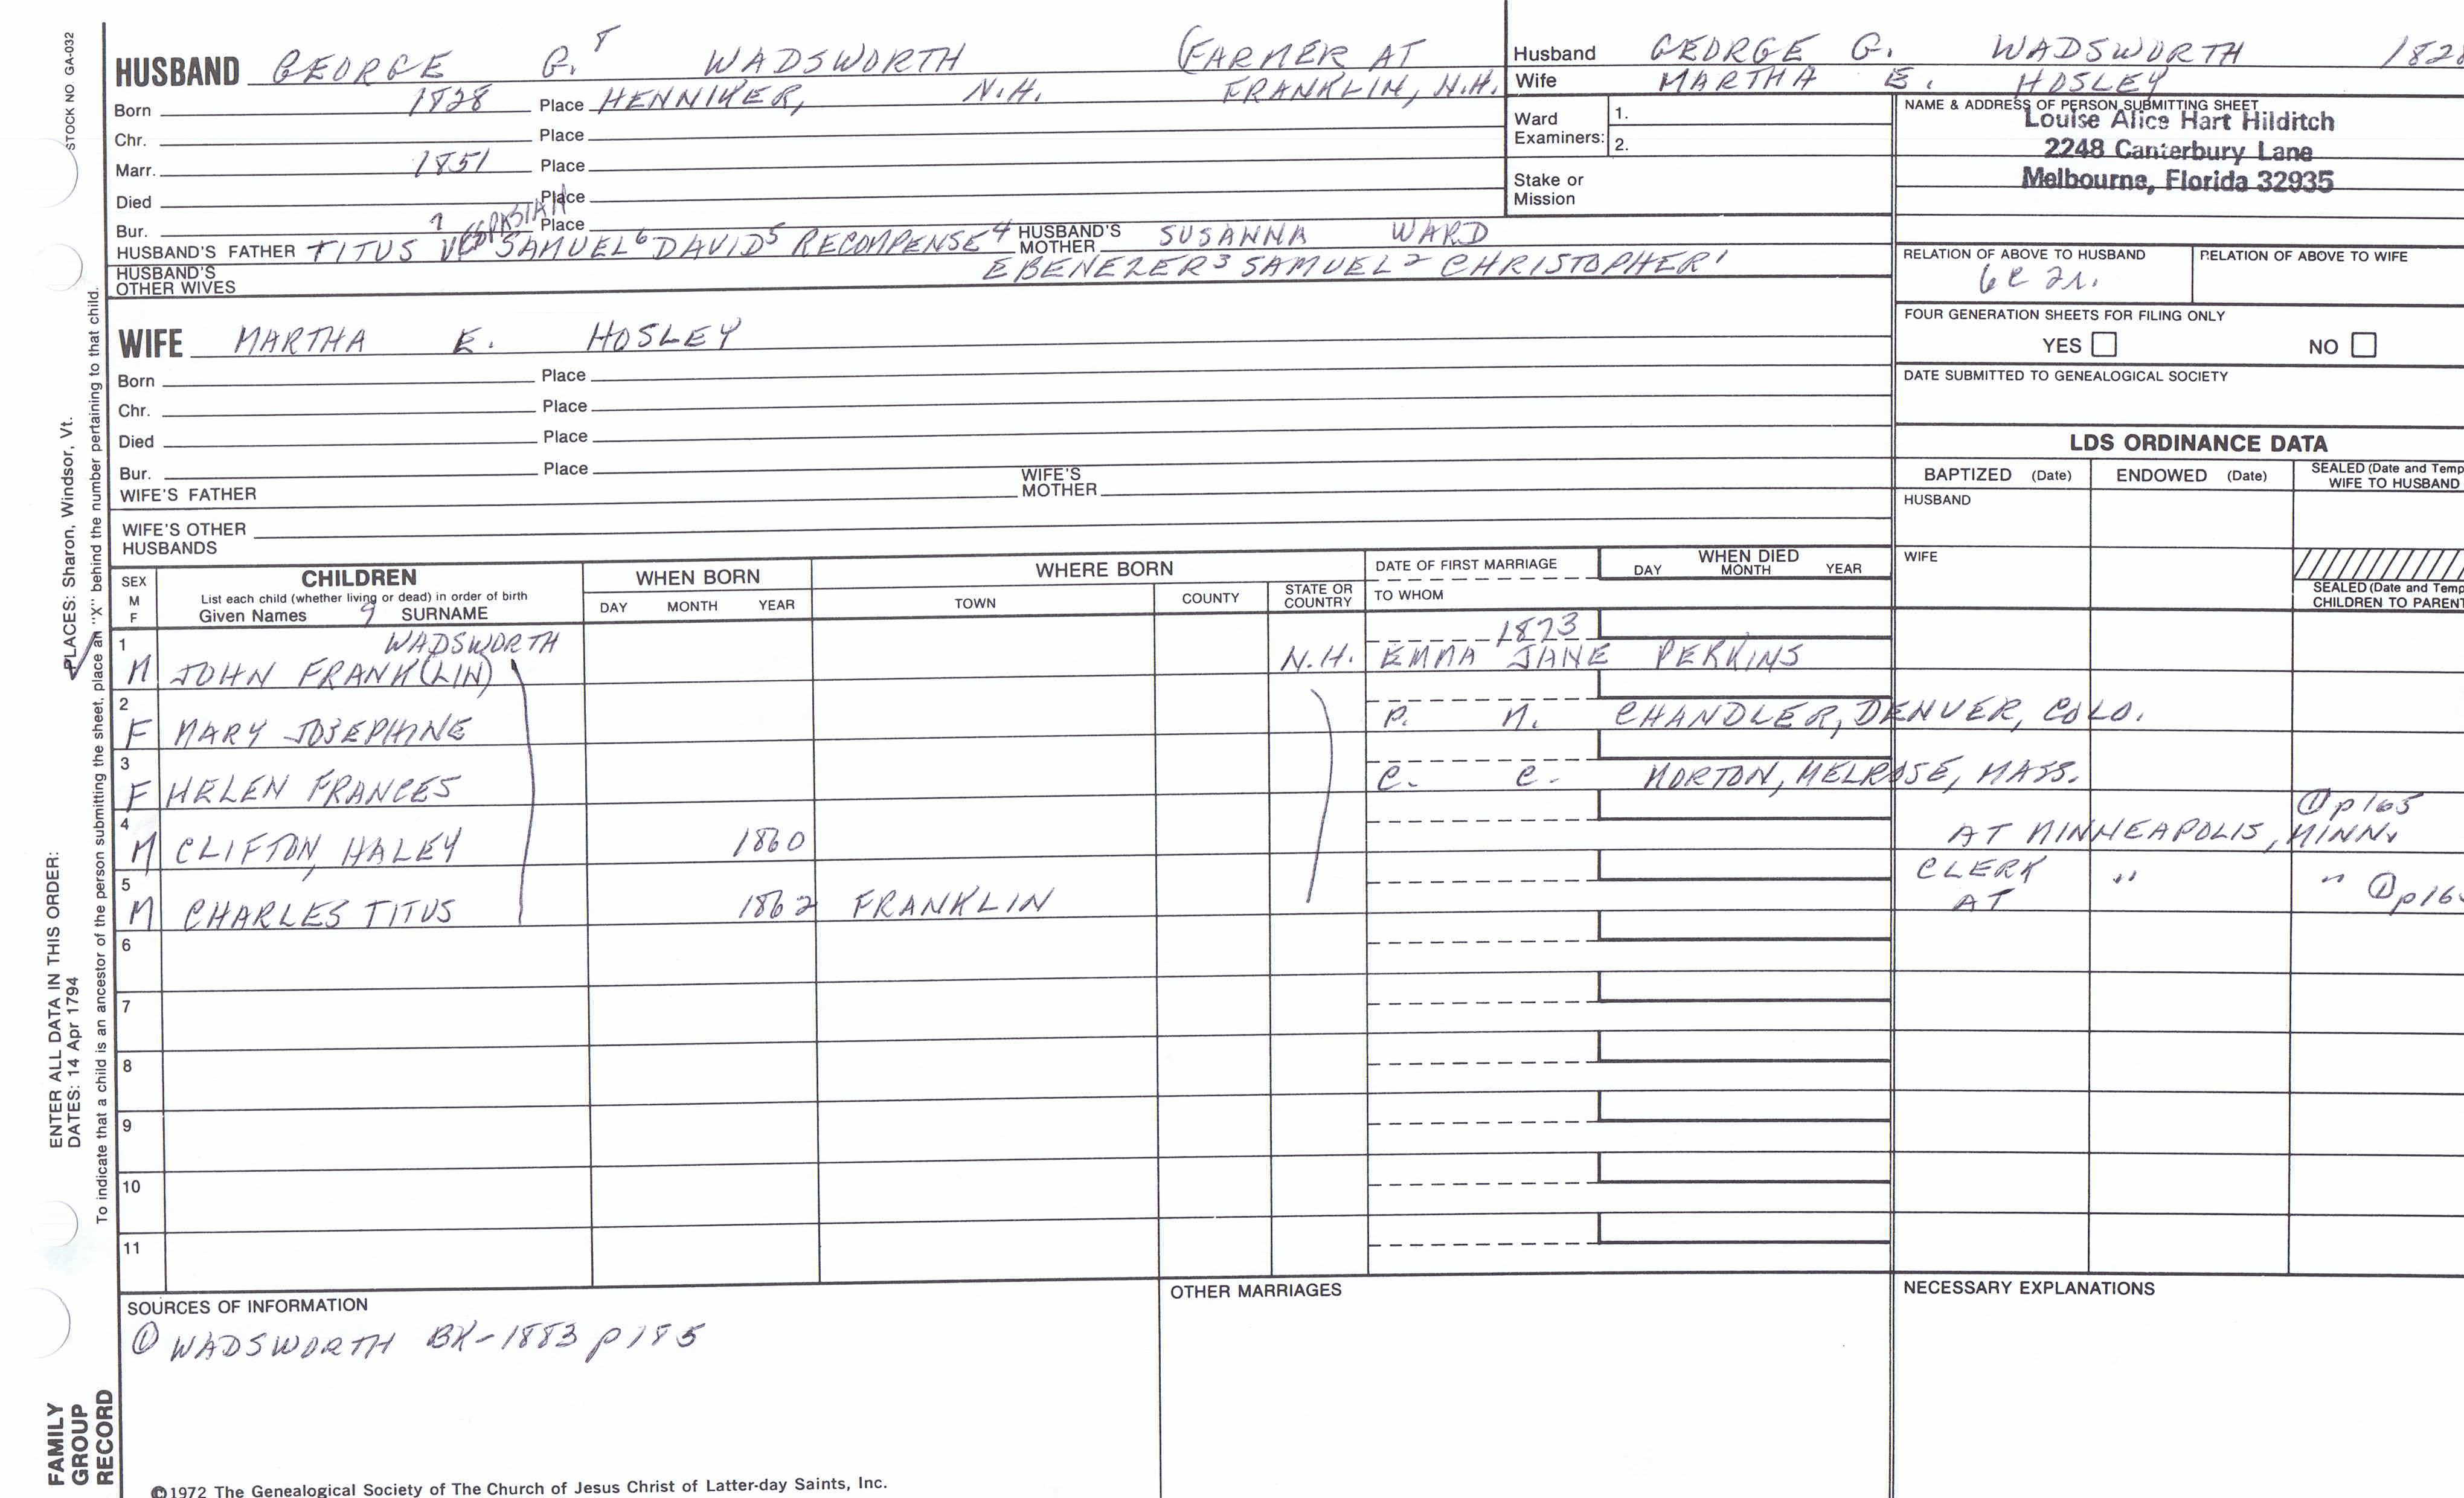 STOCK NO GA-032
PLACES: Sharon, Windsor, Vt.
ENTER ALL DATA IN THIS ORDER:
DATES: 14 Apr 1794
To indicate that a child is an ancestor of the person submitting the sheet, place an "X" behind the number pertaining to that child.
FAMILY GROUP RECORD
HUSBAND GEORGE G. 8 WADSWORTH (FARMER AT
Born 1828 Place HENNIKER, N.H. FRANKLIN, N.H.
Chr. Place
Marr. 1851 Place
Died Place
Bur. Place
HUSBAND'S FATHER TITUS 7 SAMUEL 6 DAVID 5 RECOMPENSE 4 HUSBAND'S MOTHER SUSANNA WARD
EBENEZER 3 SAMUEL 2 CHRISTOPHER 1
HUSBAND'S OTHER WIVES
WIFE MARTHA E. HOSLEY
Born Place
Chr. Place
Died Place
Bur. Place
WIFE'S FATHER WIFE'S MOTHER
WIFE'S OTHER HUSBANDS
Husband GEORGE G. WADSWORTH 1828
Wife MARTHA E. HOSLEY
Ward Examiners: 1.
2.
Stake or Mission
NAME & ADDRESS OF PERSON SUBMITTING SHEET
Louise Alice Hart Hilditch
2248 Canterbury Lane
Melbourne, Florida 32935
RELATION OF ABOVE TO HUSBAND RELATION OF ABOVE TO WIFE
6C 2r.
FOUR GENERATION SHEETS FOR FILING ONLY
YES NO
DATE SUBMITTED TO GENEALOGICAL SOCIETY
LDS ORDINANCE DATA
BAPTIZED (Date) ENDOWED (Date) SEALED (Date and Temp
WIFE TO HUSBAND
HUSBAND
WIFE
SEALED (Date and Temp
CHILDREN TO PARENT
SEX M F
CHILDREN
List each child (whether living or dead) in order of birth
Given Names 9 SURNAME
WHEN BORN
DAY MONTH YEAR
WHERE BORN
TOWN COUNTY STATE OR COUNTRY
DATE OF FIRST MARRIAGE
TO WHOM
WHEN DIED
DAY MONTH YEAR
1 WADSWORTH 1873
M JOHN FRANK(LIN) N.H. EMMA JANE PERKINS
2
F MARY JOSEPHINE P. M. CHANDLER, DENVER, COLO.
3
F HELEN FRANCES C. C. MORTON, MELROSE, MASS.
4 ① p 165
M CLIFTON HALEY 1860 AT MINNEAPOLIS, MINN.
5 CLERK AT " "
M CHARLES TITUS 1862 FRANKLIN ① p 16
6
7
8
9
10
11
SOURCES OF INFORMATION
① WADSWORTH BK-1883 p 185
OTHER MARRIAGES
NECESSARY EXPLANATIONS
©1972 The Genealogical Society of The Church of Jesus Christ of Latter-day Saints, Inc.